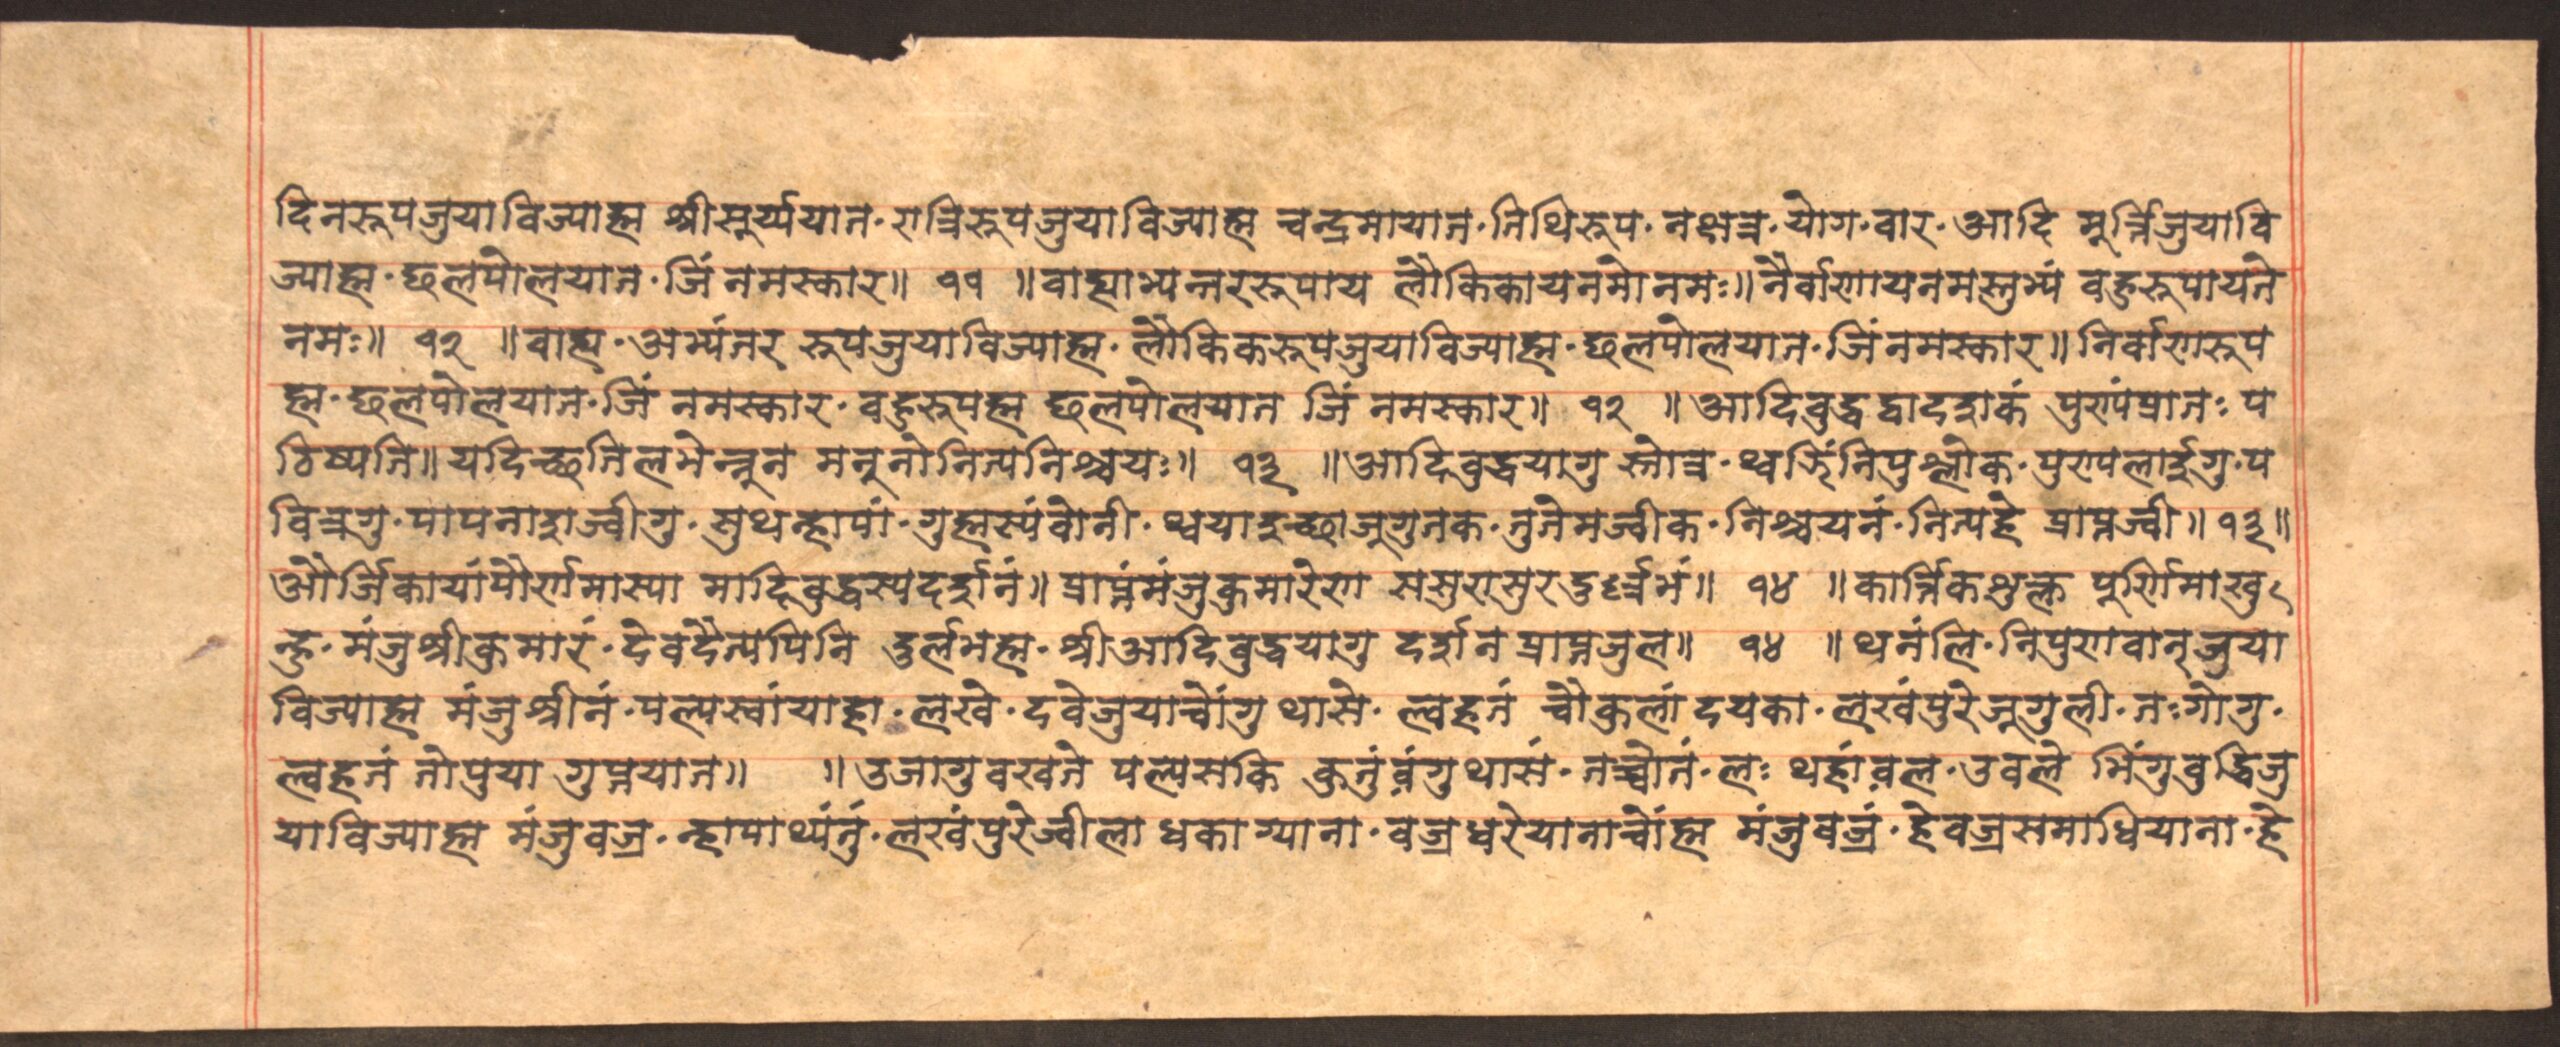 दिनरूपजुयाविज्याह्म श्रीसूर्य्ययात·रात्रिरूपजुयाविज्याह्म चन्द्रमायात·तिथिरूप·नक्षत्र·योग·वार·आदि मूर्त्तिजुयावि
ज्याह्म·छलपोलयात·जिं नमस्कार॥ ११ ॥वाह्याभ्यन्तररूपाय लौकिकायनमोनमः॥नैर्वाणायनमस्तुभ्यं वहुरूपायते
नमः॥ १२ ॥वाह्य·अभ्यंतर रूपजुयाविज्याह्म·लौकिकरूपजुयाविज्याह्म·छलपोलयात·जिंनमस्कार॥निर्वाणरूप
ह्म·छलपोलयात·जिं नमस्कार·वहुरूपह्म छलपोलयात जिं नमस्कार॥ १२ ॥आदिबुद्धद्वादशकं पुण्यंप्रातः प
ठिष्यति॥यदिच्छतिलभेन्नून मनुनोनित्यनिश्चयः॥ १३ ॥आदिबुद्धयागु स्तोत्र·थ्व झिंनिपुश्लोक·पुण्यलाईगु·प
वित्रगु·पापनाशज्वीगु·सुथन्हापां·गुह्मस्यंवोनी·थ्वयाइच्छाजूगुतक·तुतेमज्वीक·निश्चयनं·नित्यहे प्राप्तज्वी॥१३॥
और्जिकायांपौर्णमास्या मादिबुद्धस्यदर्शनं॥प्राप्तंमंजुकुमारेण ससुरासुरदुर्ल्लभं॥ १४ ॥कार्त्तिकशुक्ल पूर्णिमाखु
न्हु·मंजुश्रीकुमारं·देवदैत्यपिनि दुर्लभह्म·श्रीआदिबुद्धयागु दर्शनप्राप्तजुल॥ १४ ॥थनंलि·निपुणवान्जुया
विज्याह्म मंजुश्रीनं·पल्यस्वांयाहा·लखे·दवेजुयाच्वोंगु थासे·ल्वहनं चौकुलां दयका·लखंपुरेजूगुली·तःगोगु·
ल्वहनं तोपुया गुप्तयात॥ ॥उजागुवखते पल्यसकि कुतुंवंगुथासं·नच्वोनं·लः थहांवल·उवले भिंगुबुद्धिजु
याविज्याह्म मंजुवज्र·न्हापाथ्यंतुं·लखंपुरेज्वीला धकाग्याना·वज्रधरेयानाच्वोंह्म मंजुवज्रं·हेवज्रसमाधियाना·हे